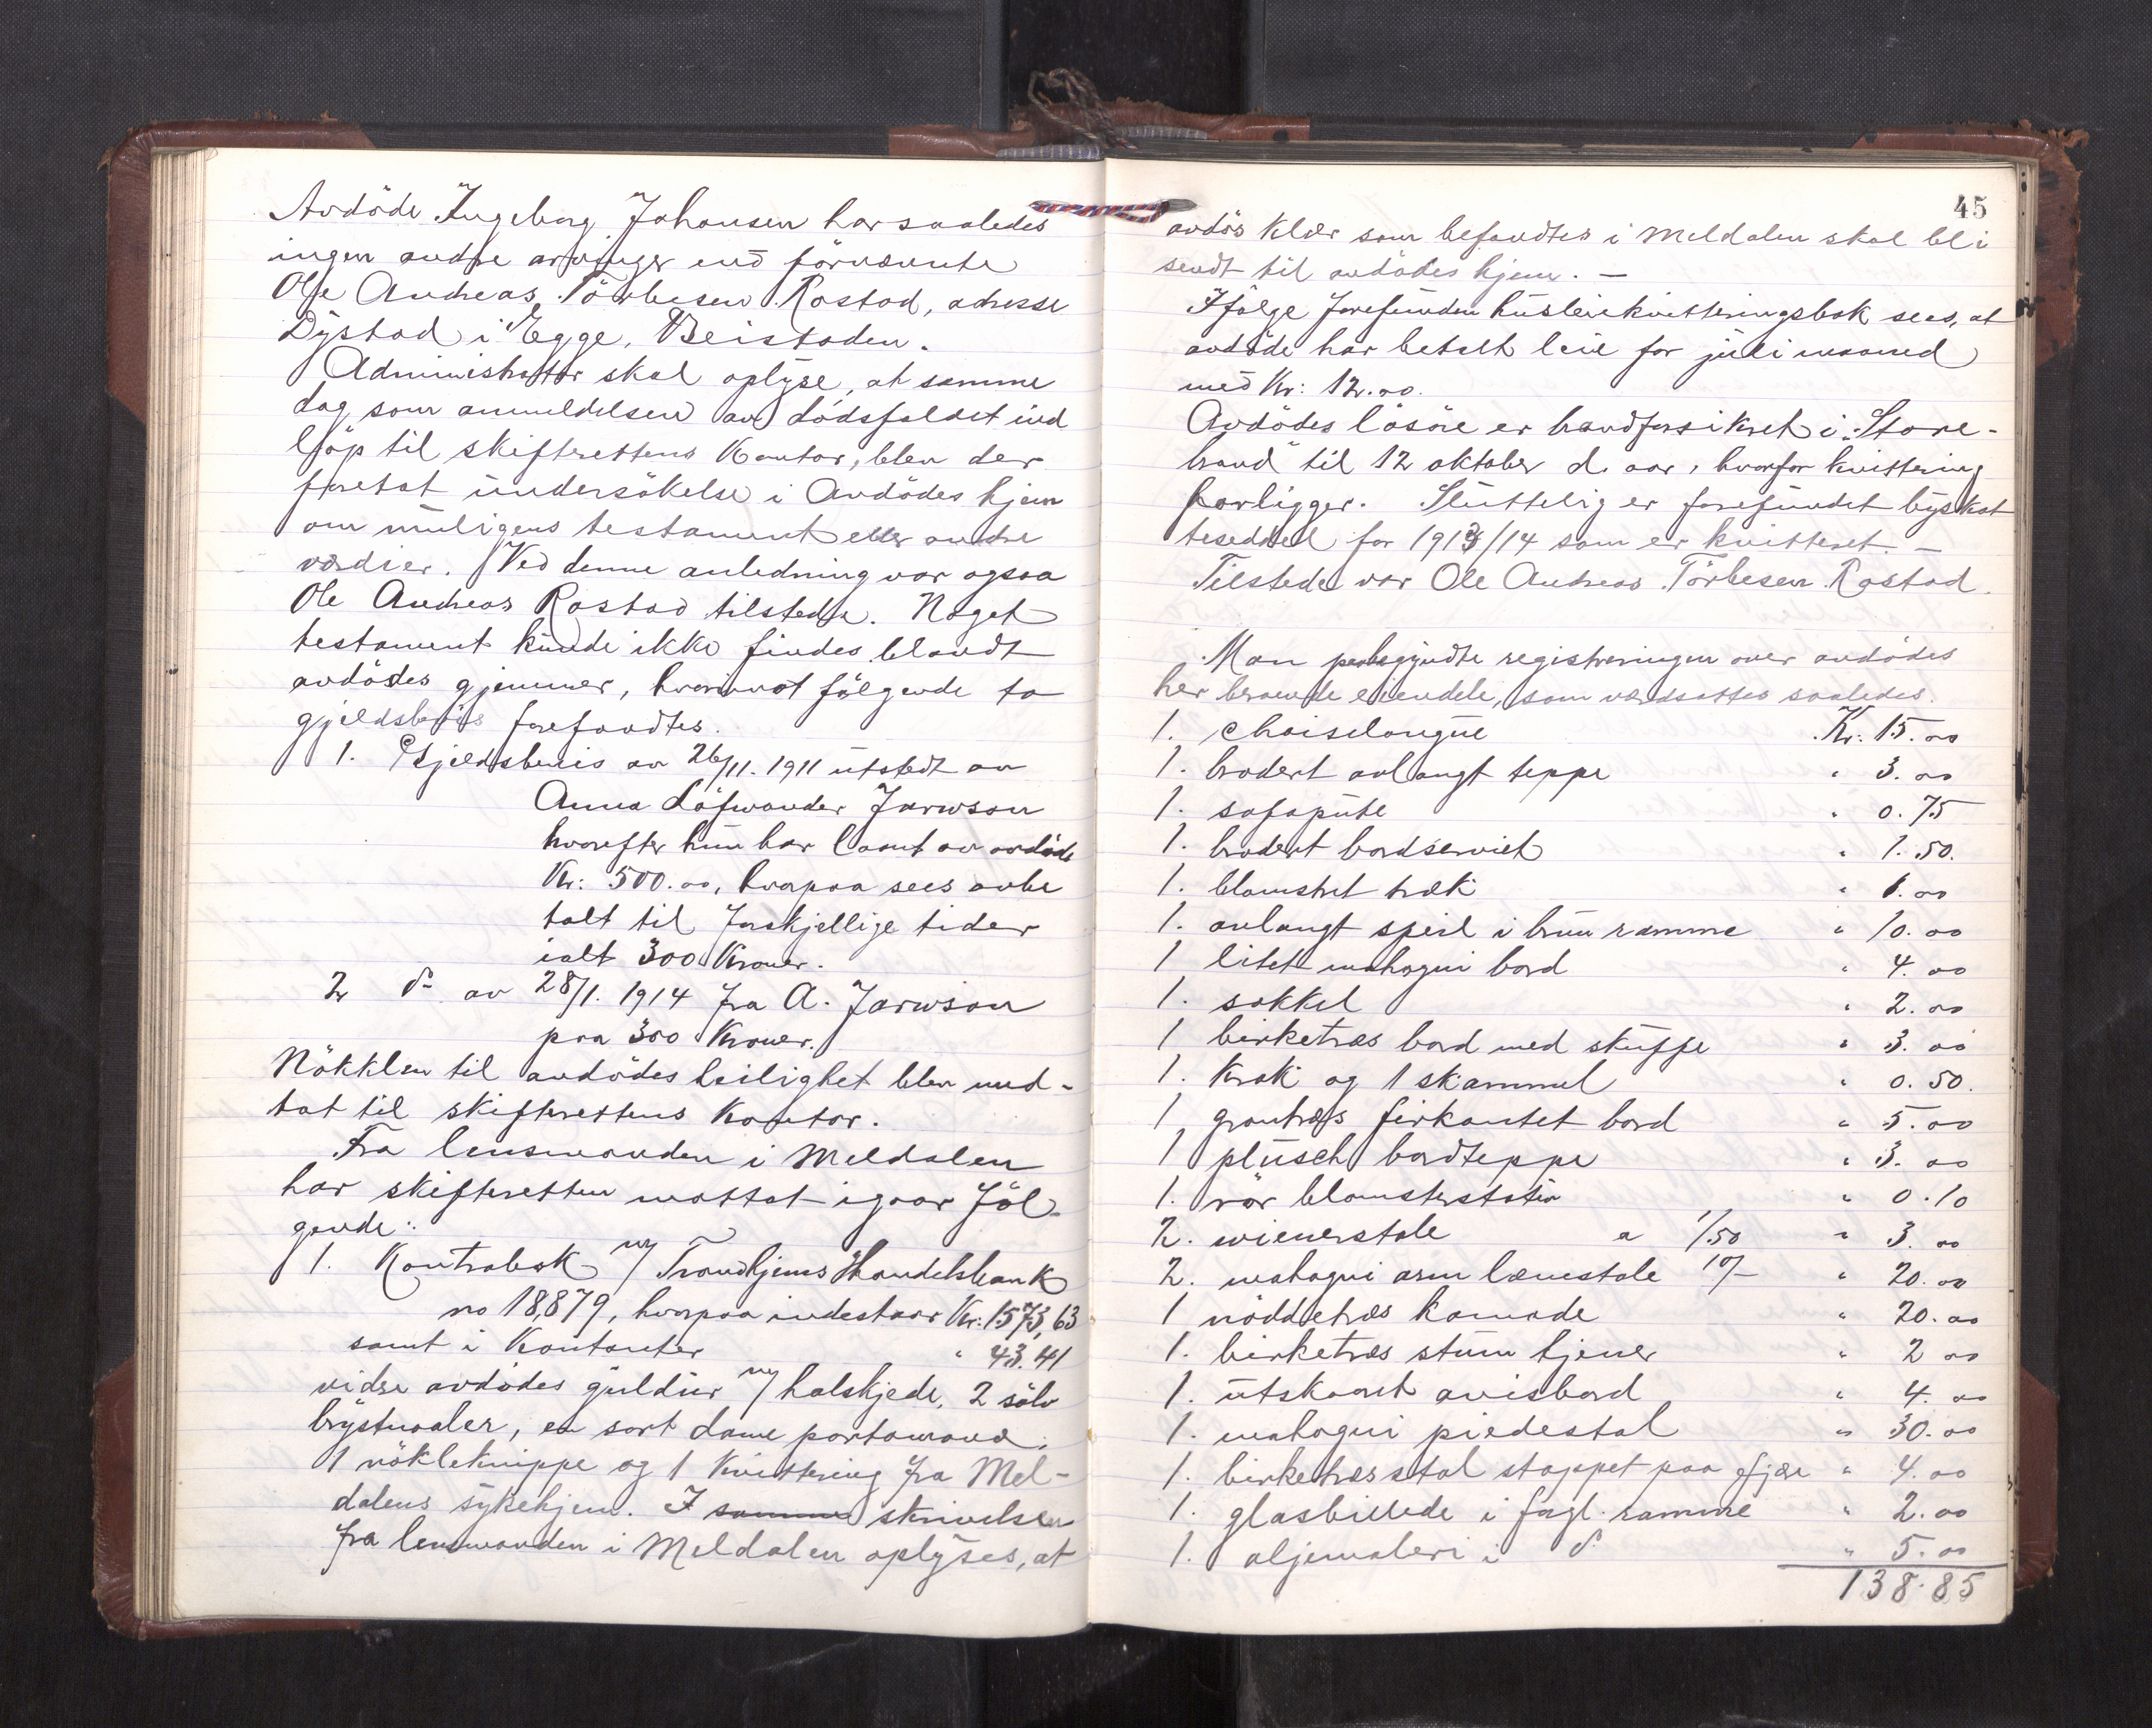 Avdöde Ingeborg Johansen har saaledes
ingen andre arvinger end förnævnte
Ole Andreas Törbesen Rostad, adresse
Dystad i Egge, Beistaden.
Administrator skal oplyse, at samme
dag, som anmeldelsen av dödsfaldet ind
löp til skifterettens Kontor, blev der
foretat undersökelse i Avdödes hjem
om muligens testament eller andre
værdier. Ved denne anledning var ogsaa
Ole Andreas Rostad tilstede. Noget
testament kunde ikke findes blandt
avdödes gjemmer, hvorimot fölgende to
gjeldsbevis forefandtes.
1. Gjeldsbevis av 26/11. 1911 utstedt av
Anna Löfwander Jarwson
hvorefter hun har laant av avdöde
Kr: 500.00, hvorpaa sees avbe
talt til forskjellige tider
ialt 300 Kroner.
2 do av 28/1. 1914 fra A. Jarwson
paa 300 Kroner.
Nökklen til avdödes leilighet blev med-
tat til skifterettens Kontor.
Fra lensmanden i Meldalen
har skifteretten mottat igaar föl-
gende:
1. Kontrabok m/ Trondhjems Handelsbank
no 18,879, hvorpaa indestaar Kr: 1573,63
samt i Kontanter " 43.41
vidre avdödes guldur m/ halskjede, 2 sölv
brystnaaler, en sort dame portamoné,
1 nökleknippe og 1 Kvittering fra Mel-
dalens sykehjem. I samme skrivelse
fra lensmanden i Meldalen oplyses, at
45
avdös klær som befandtes i Meldalen skal bli
sendt til avdödes hjem. –
Ifölge forefunden husleiekvitteringsbok sees, at
avdöde har betalt leie for juli maaned
med Kr: 12.00.
Avdödes lösöre er brandforsikret i "Store-
brand" til 12 oktober d. aar, hvorfor kvittering
forligger. Sluttelig er forefundet byskat
teseddel for 1913/14 som er kvitteret. –
Tilstede var Ole Andreas Törbesen Rostad.
Man paabegyndte registreringen over avdödes
her beroende eiendele, som værdsattes saaledes.
1. chaiselongue Kr: 15.00
1. brodert avlangt teppe " 3.00
1. sofapute " 0.75
1. brodert bordserviet " 1.50.
1. blomstret træk " 1.00
1. avlangt speil i brun ramme " 10.00
1 litet mahogni bord " 4.00
1. sokkel " 2.00
1 birketræs bord med skuffe " 3.00
1. krak og 1 skammel " 0.50.
1 grantræs firkantet bord " 5.00
1 plusch bordteppe " 3.00
1. rör blomsterstativ " 0.10
2. wienerstole a 1/50 " 3.00
2. mahogni arm lænestole 10/- " 20.00
1 nöddetræs komode " 20.00
1. birketræs stum tjener " 2 00
1. utskaaret avisbord " 4.00
1. mahogni piedestal " 30.00
1. birketræs stol stoppet paa fjær " 4.00
1. glasbillede i forgl. ramme " 2.00
1. oljemaleri i do " 5.00
138.85